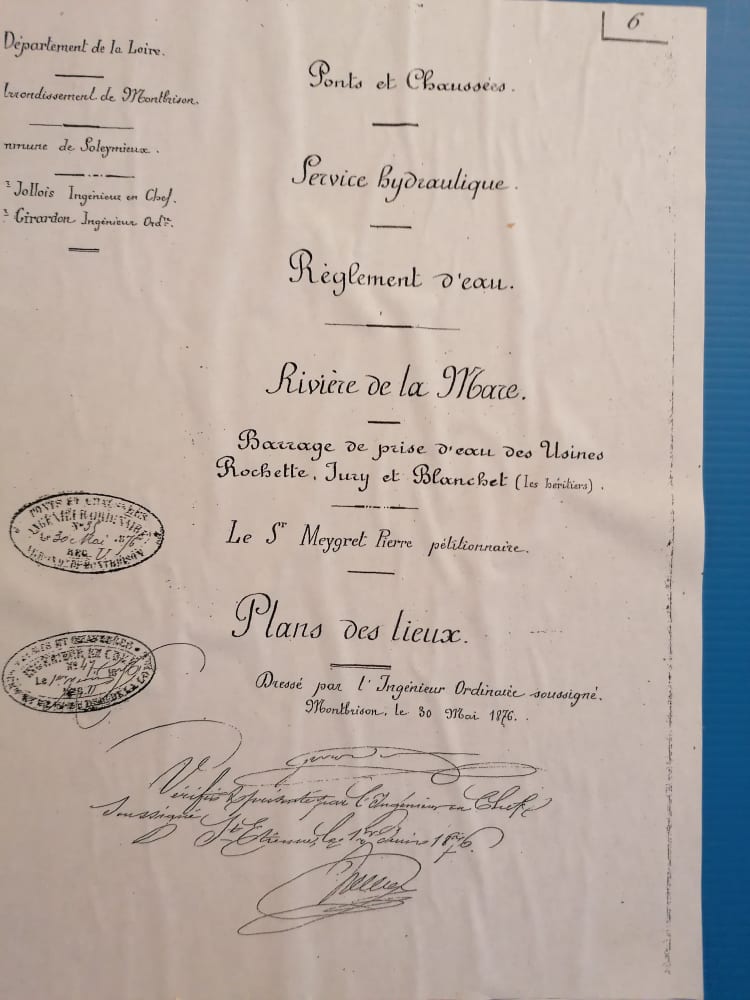 6
Département de la Loire.
Arrondissement de Montbrison.
mmune de Soleymieux.
Jollois Ingénieur en Chef.
Girardon Ingénieur Ord.re
Ponts et Chaussées.
Service hydraulique.
Règlement d'eau.
Rivière de la Mare.
Barrage de prise d'eau des Usines
Rochette, Jury et Blanchet (les héritiers).
Le Sr Meygret Pierre pétitionnaire.
Plans des lieux.
Dressé par l'Ingénieur Ordinaire soussigné.
Montbrison, le 30 Mai 1876.
PONTS ET CHAUSSÉES
INGÉNIEUR ORDINAIRE
N° 35
le 30 Mai 1876
REG. U
MONTBRISON
INGÉNIEUR EN CHEF
N° 47
Le
REG. U
Vérifié et présenté par l'Ingénieur en Chef
soussigné
St Etienne, le 1er Juin 1876.